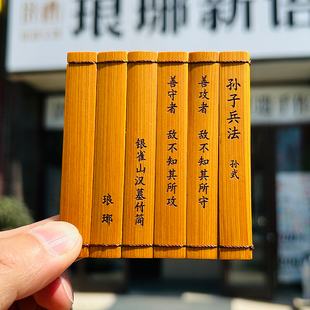 琅琊新语
孙子兵法 孙武
善攻者 敌不知其所守
善守者 敌不知其所攻
银雀山汉墓竹简
琅琊